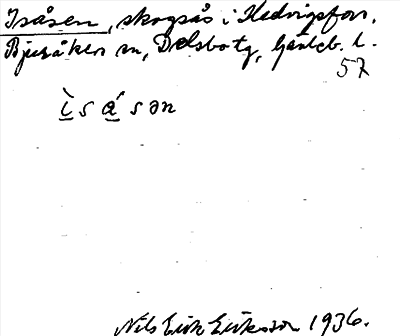 Isåsen, skogsås i Hedvigsfors,
Bjuråkers sn, Delsbo tg, Gävleb. l.
57
ìsása̱n
Nils Erik Eriksson 1936.